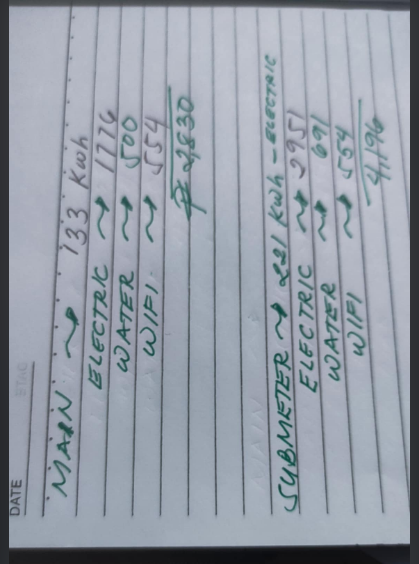 DATE
MAIN ~ 133 Kwh
ELECTRIC ~ 1776
WATER ~ 500
WIFI ~ 554
₱ 2,830
SUBMETER ~ 221 Kwh - ELECTRIC
ELECTRIC ~ 2951
WATER ~ 691
WIFI ~ 554
4,196